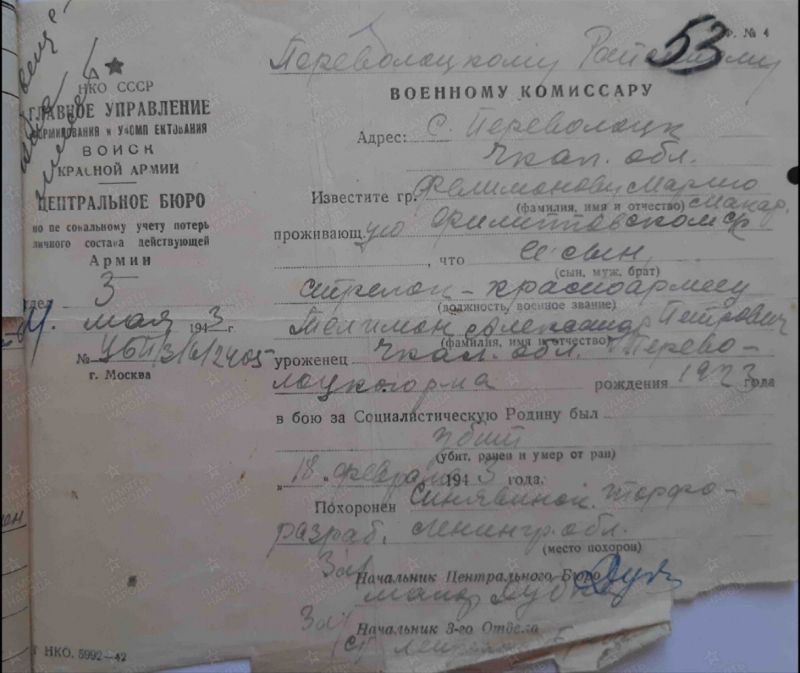 53
Ф. № 4
НКО СССР
ГЛАВНОЕ УПРАВЛЕНИЕ
ФОРМИРОВАНИЯ и УКОМПЛЕКТОВАНИЯ
ВОЙСК
КРАСНОЙ АРМИИ
ЦЕНТРАЛЬНОЕ БЮРО
по персональному учету потерь
личного состава действующей
Армии
отдел 3
мая 1943 г.
№
г. Москва
НКО. 5992—42
Переволоцкому
ВОЕННОМУ КОМИССАРУ
Адрес: с. Переволоцк
Чкал. обл.
Известите гр. Филимонову Марию
(фамилия, имя и отчество) Макар.
проживающую Филипповском
, что её сын
(сын, муж, брат)
стрелок - красноармеец
(должность, военное звание)
Александр Петрович
(фамилия, имя и отчество)
уроженец Чкал. обл. Перево-
лоцкого р-на рождения 1923 года
в бою за Социалистическую Родину был
убит
(убит, ранен и умер от ран)
„ 18 „ февраля 1943 года.
Похоронен Синявинск. торфо-
разраб. Ленингр. обл.
(место похорон)
Зам
Начальник Центрального Бюро
майор
Зам
Начальник 3-го Отдела